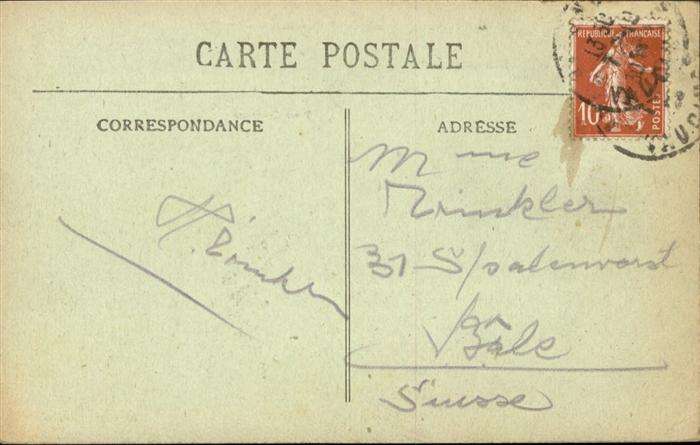 CARTE POSTALE
CORRESPONDANCE
ADRESSE
REPUBLIQUE FRANÇAISE
10c
POSTES
Mme
Winkler
31 Spalenvorst
Bâle
Suisse